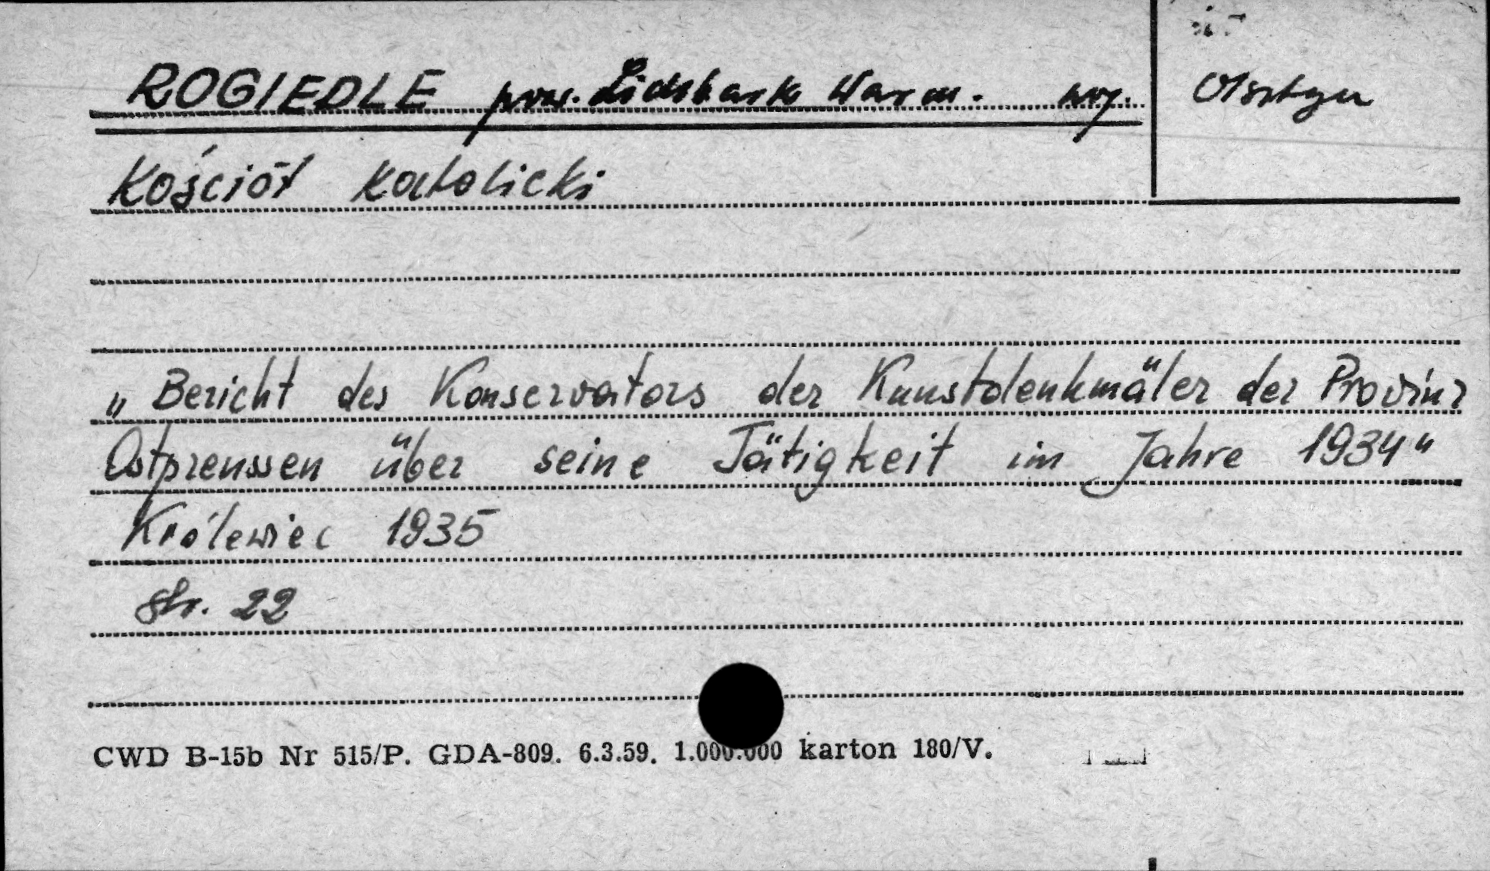 ROGIEDLE pow. Lidzbark Warm. woj. Olsztyn
Kościół katolicki
„Bericht des Konservators der Kunstdenkmäler der Provinz
Ostpreussen über seine Tätigkeit im Jahre 1934"
Królewiec 1935
str. 22
CWD B-15b Nr 515/P. GDA-809. 6.3.59. 1.000.000 karton 180/V.